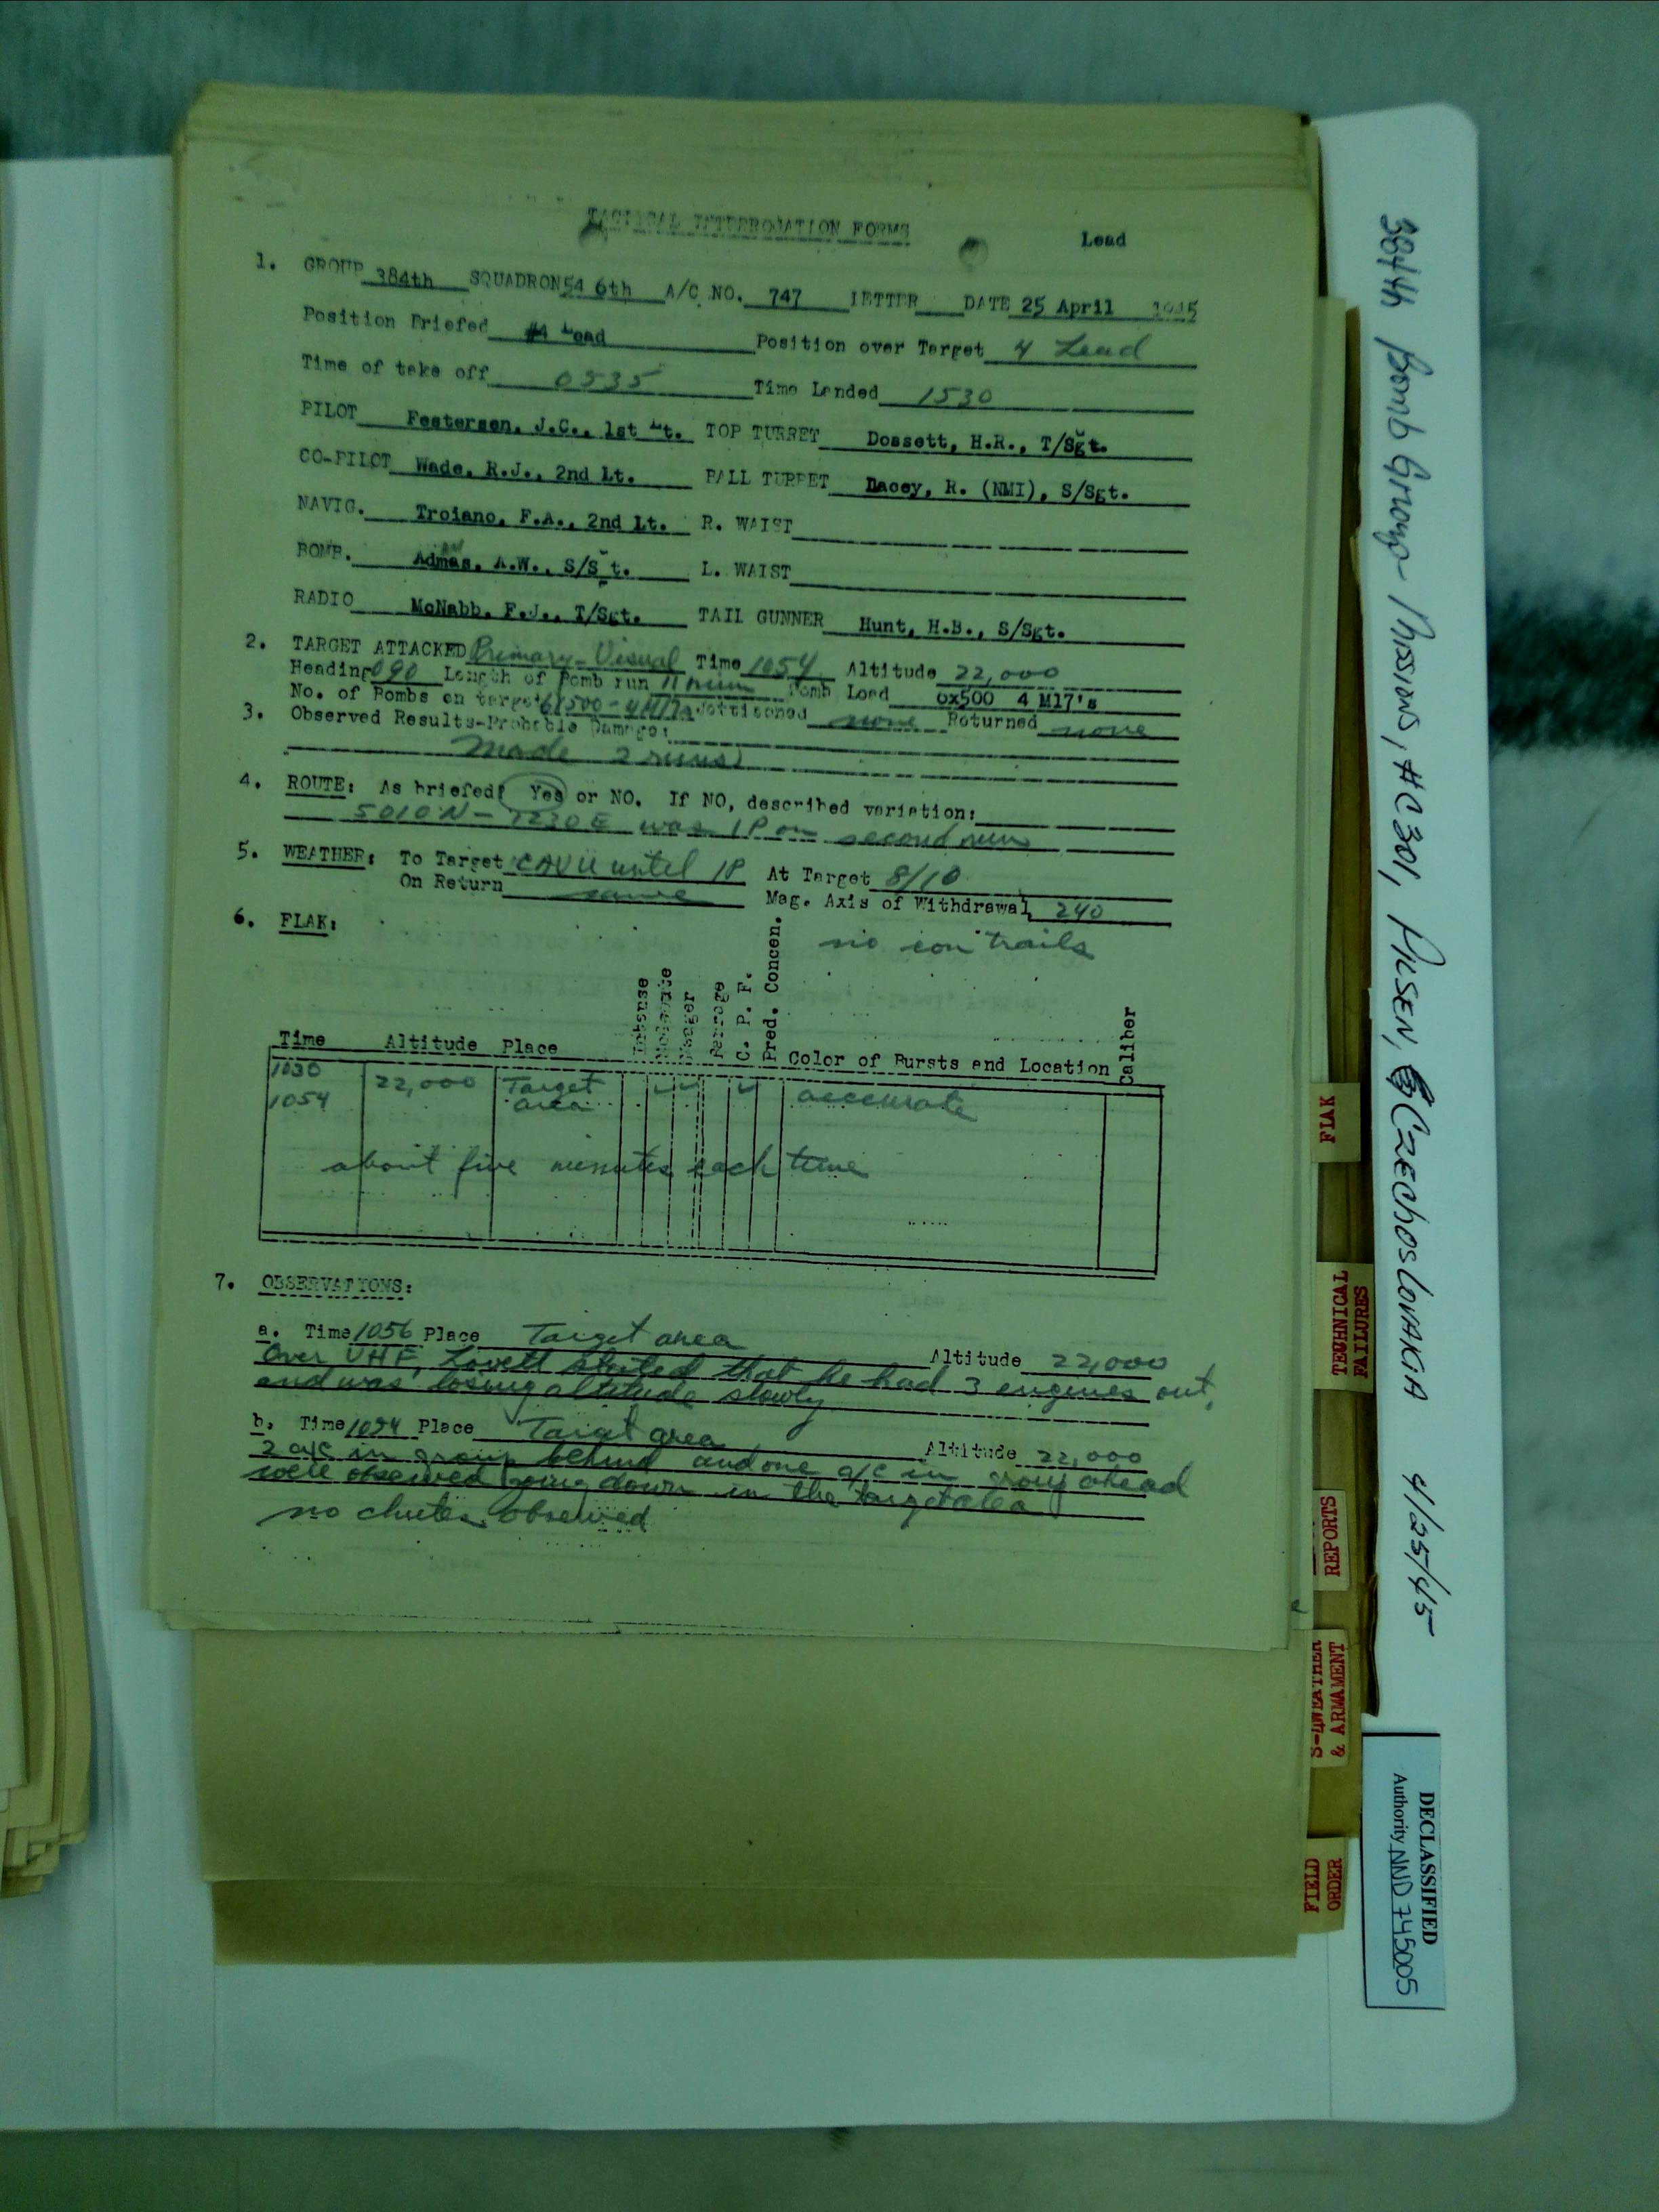 TACTICAL INTERROGATION FORMS
Lead
1. GROUP 384th SQUADRON 546th A/C NO. 747 LETTER DATE 25 April 1945
Position Briefed #4 Lead Position over Target 4 Lead
Time of take off 0535 Time Landed 1530
PILOT Festersen, J.C., 1st Lt. TOP TURRET Dossett, H.R., T/Sgt.
CO-PILOT Wade, R.J., 2nd Lt. BALL TURRET Dacey, R. (NMI), S/Sgt.
NAVIG. Troiano, F.A., 2nd Lt. R. WAIST
BOMB. Admas, A.W., S/Sgt. L. WAIST
RADIO McNabb, F.J., T/Sgt. TAIL GUNNER Hunt, H.B., S/Sgt.
2. TARGET ATTACKED Primary - Visual Time 1054 Altitude 22,000
Heading 090 Length of Bomb run 11 min Bomb Load 6x500 4 M17's
No. of Bombs on target 6x500 - 4M17s Jettisoned none Returned none
3. Observed Results-Probable Damage:
Made 2 runs
4. ROUTE: As briefed? Yes or NO. If NO, described variation:
5010N - 1230E was IP on second run
5. WEATHER: To Target CAVU until IP At Target 8/10
On Return same Mag. Axis of Withdrawal 240
6. FLAK: no con trails
Time Altitude Place Intense Moderate Meager Barrage C. P. F. Pred. Concen. Color of Bursts and Location Caliber
1030 22,000 Target accurate
1054 area
about five minutes each time
7. OBSERVATIONS:
a. Time 1056 Place Target area Altitude 22,000
Over VHF, Lovett stated that he had 3 engines out,
and was losing altitude slowly
b. Time 1054 Place Target area Altitude 22,000
2 a/c in group behind and one a/c in group ahead
were observed going down in the target area
no chutes observed
384th Bomb Group Missions, #C301, PILSEN, CZEChOSLOVAKIA 4/25/45
FLAK
TECHNICAL
FAILURES
REPORTS
S-4WEATHER
& ARMAMENT
FIELD
ORDER
DECLASSIFIED
Authority NND 745005